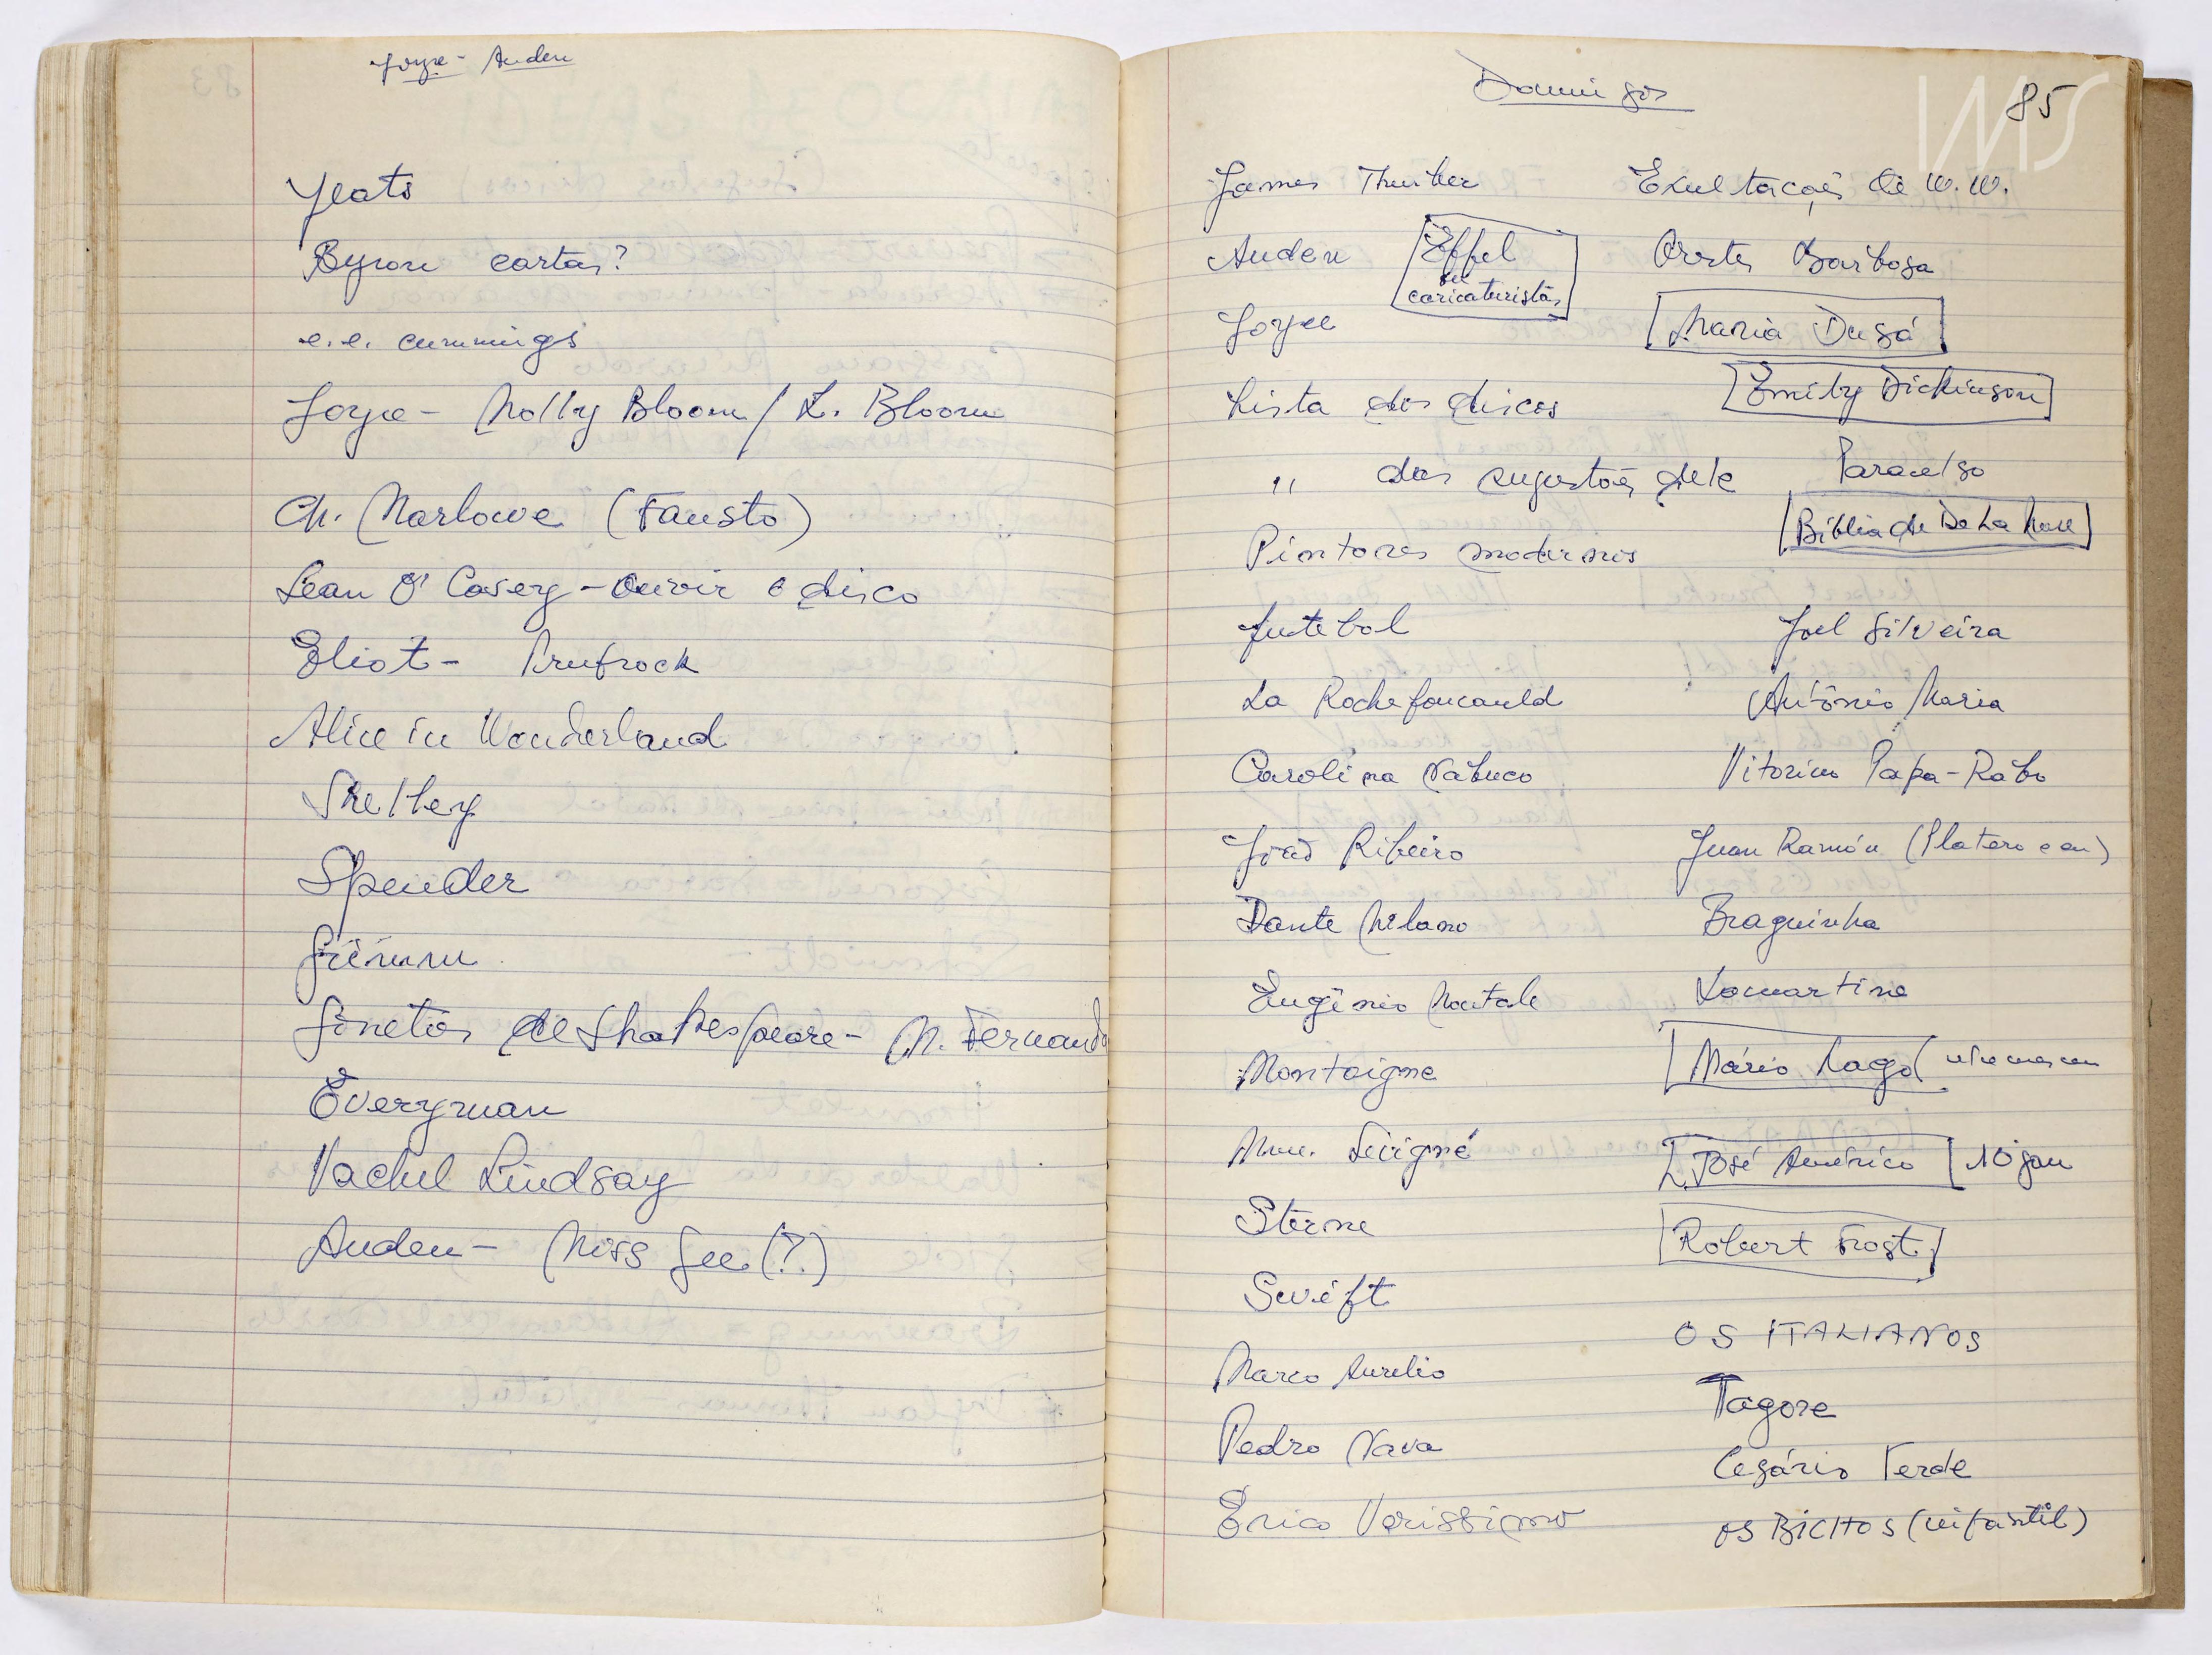 Joyce - Auden
Yeats
Byron cartas?
e.e. cummings
Joyce - Molly Bloom / L. Bloom
Ch. Marlowe (Fausto)
Sean O'Casey - ouvir o disco
Eliot - Prufrock
Alice in Wonderland
Shelley
Spender
Grimm
Sonetos de Shakespeare - M. Fernandes
Everyman
Vachel Lindsay
Auden - Miss Gee (?)
Domingos
85
IMS
James Thurber
Auden
Effel
caricaturistas
Joyce
Lista dos discos
" das sugestões dele
Pintores modernos
futebol
La Rochefoucauld
Carolina Nabuco
João Ribeiro
Dante Milano
Eugênio Montale
Montaigne
Mme. Sévigné
Sterne
Swift
Marco Aurelio
Pedro Nava
Erico Verissimo
Exultações de W. W.
Orestes Barbosa
Maria Dusá
Emily Dickinson
Paracelso
Bíblia de De La Mare
Joel Silveira
Antônio Maria
Vitorino Papa-Rabo
Juan Ramón (Platero e eu)
Braguinha
Lamartine
Mário Lago
José Américo 10 jan
Robert Frost
OS ITALIANOS
Tagore
Cesário Verde
OS BICHOS (infantil)